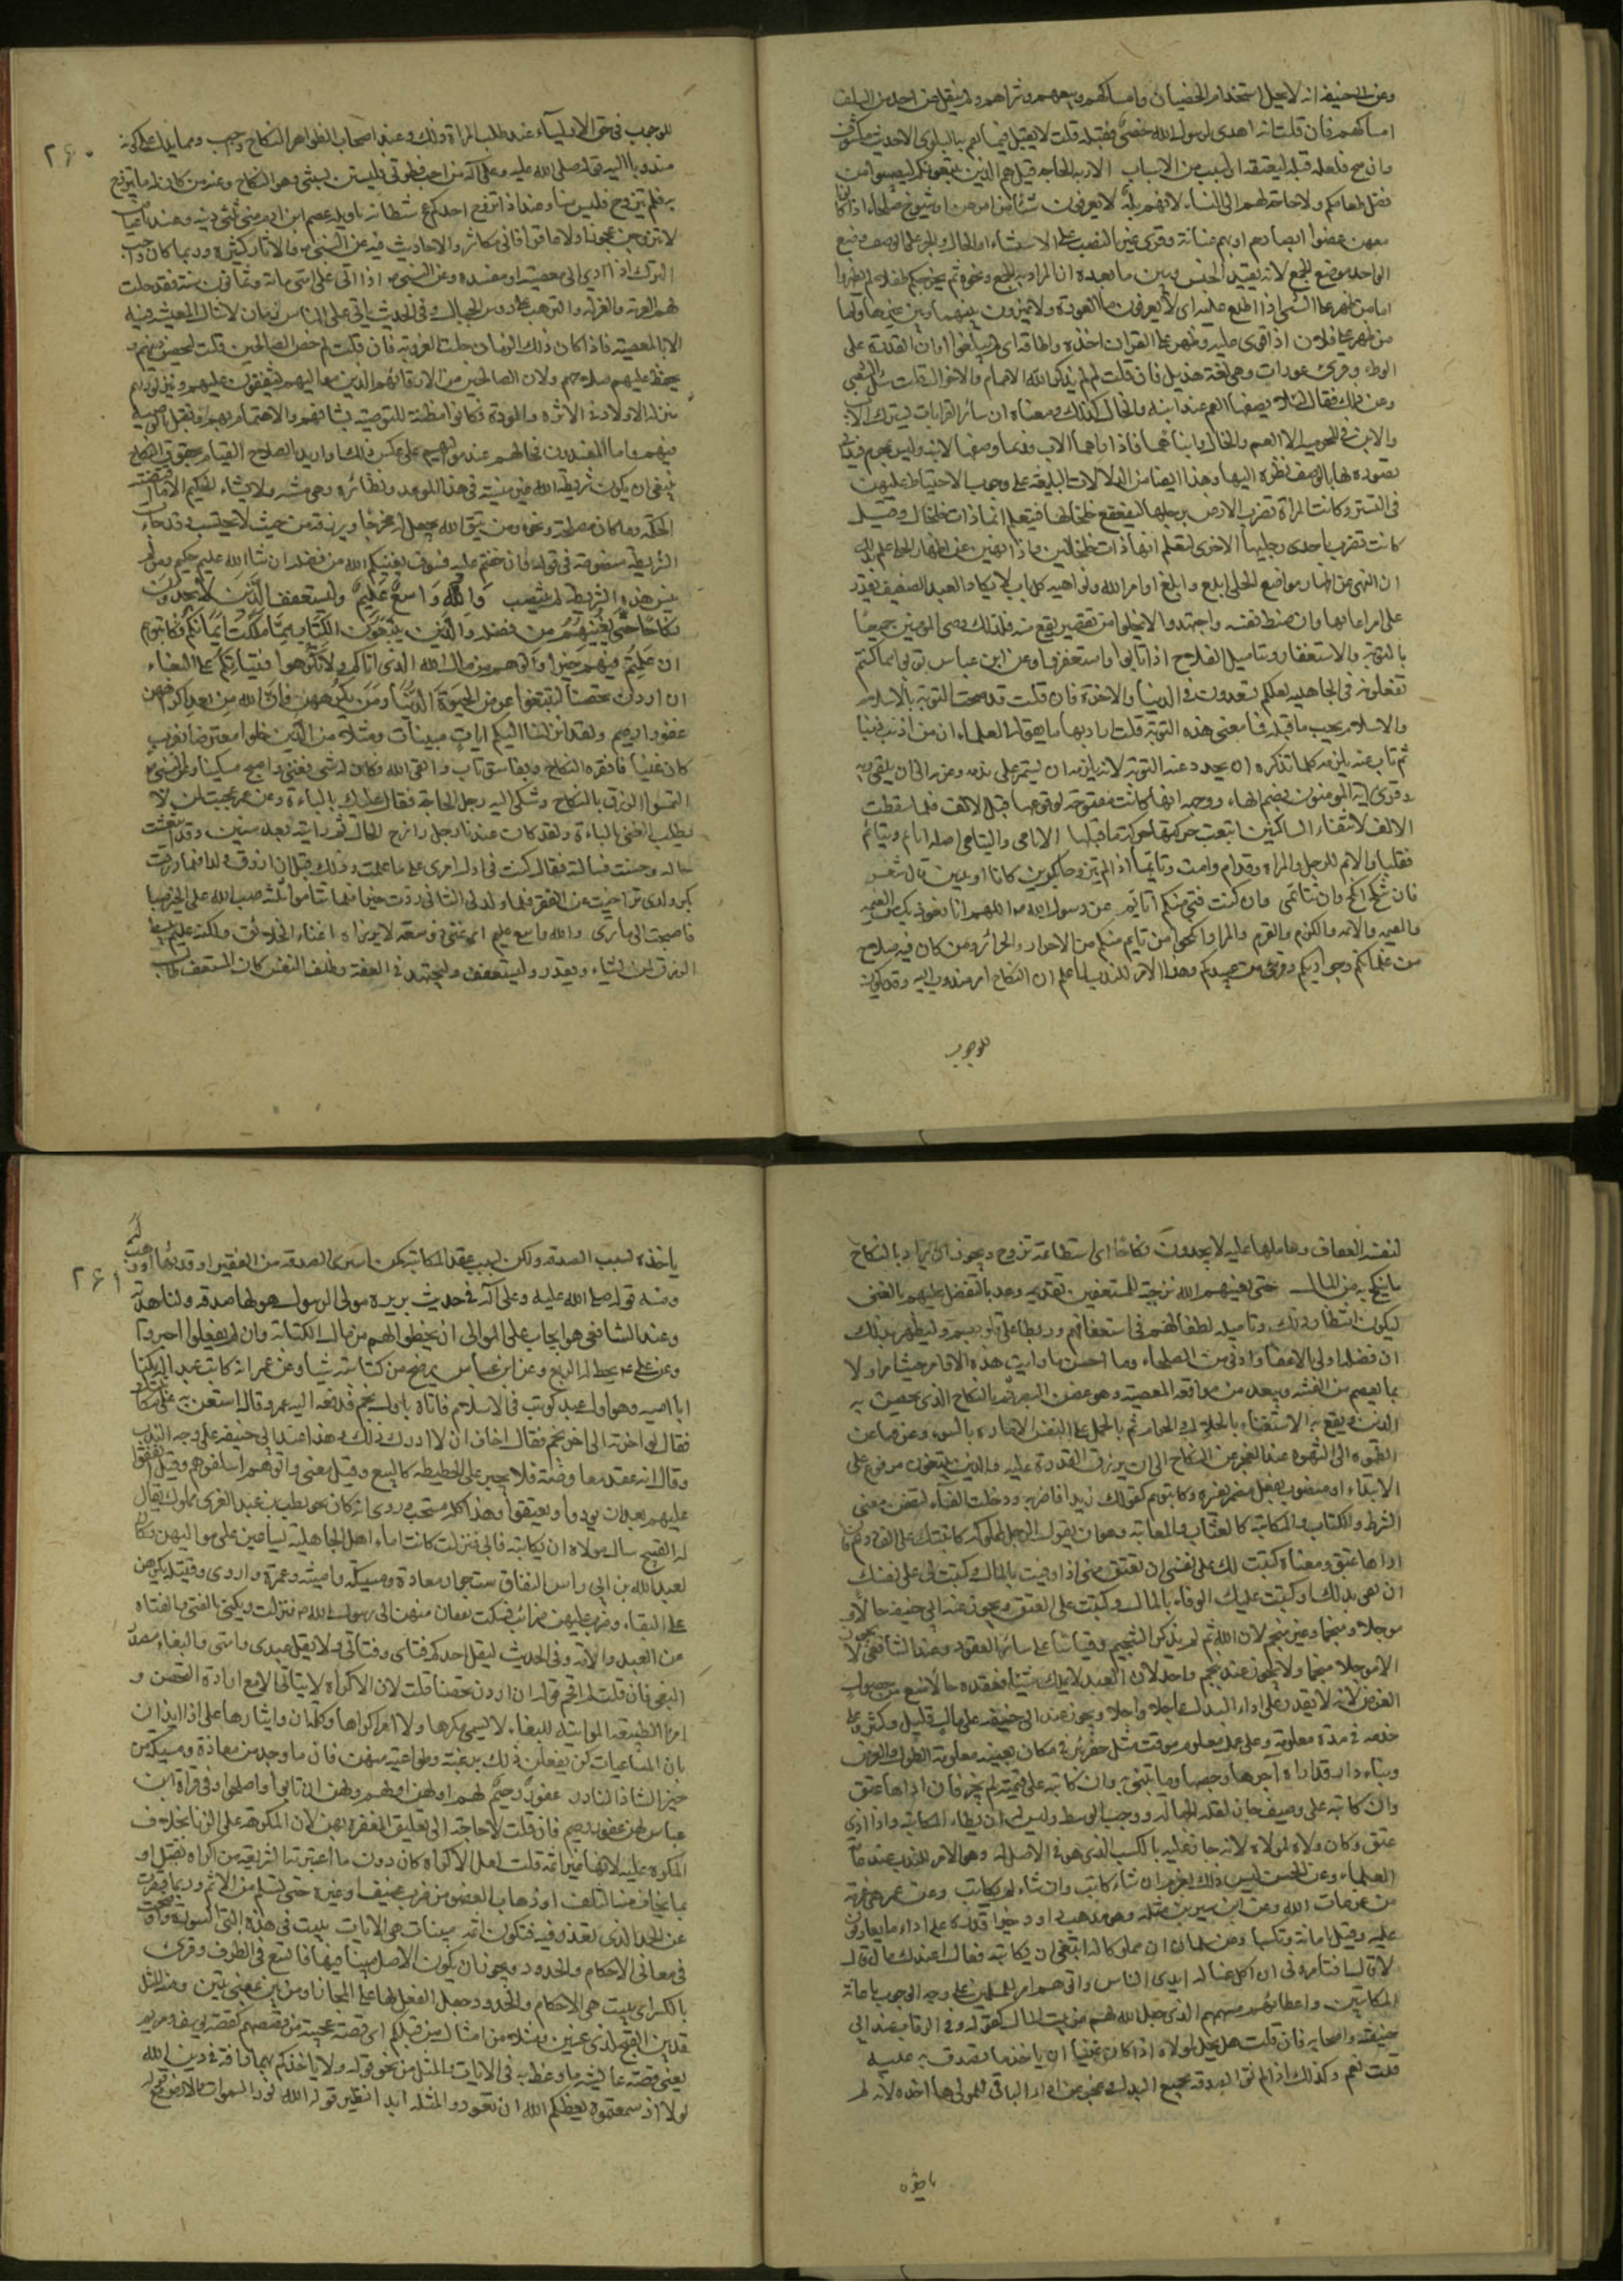 وعن ابى حنيفة انه لا يحل استخدام الخصيان وامساكهم وبيعهم وشراهم ولم ينقل عن احد من السلف
امساكهم فان قلت انه اهدى لرسول الله خصى فقبله قلت لا يقبل فيما تعم به البلوى الا حديث مكشوف
وان صح فلعله قبله ليعتقه او لسبب من الاسباب الاربة الحاجة قيل هم الذين يتبعونكم ليصيبوا من
فضل طعامكم ولا حاجة لهم الى النساء لانهم بله لا يعرفون شيئا من امرهن او شيوخ صلحاء اذا كانوا
معهن غضوا ابصارهم او بهم عنانة وقرى غير بالنصب على الاستثناء او الحال والجر على الوصف وضع
الواحد موضع الجمع لانه يفيد الجنس ويبين ما بعده ان المراد به الجمع ونحوه ثم يخرجكم طفلا لم يظهروا
اما من ظهر على الشئ اذا اطلع عليه اى لا يعرفون ما العورة ولا يميزون بينها وبين غيرها واما
من ظهر على فلان اذا قوى عليه وظهر على القران اخذه واطاقه اى لم يبلغوا اوان القدرة على
الوطء وقرئ عورات وهى لغة هذيل فان قلت لم لم يذكر الله الاعمام والاخوال قلت سئل الشعبى
وعن ذلك فقال لئلا يصفها العم عند ابنه والخال كذلك ومعناه ان سائر القرابات يشترك الاب
والابن فى المحرمية الا العم والخال وابناهما فاذا راها الاب فربما وصفها لابنه وليس بمحرم فيدانى
تصوره لها بالوصف نظره اليها وهذا ايضا من الدلالات البليغة على وجوب الاحتياط عليهن
فى التستر وكانت المراة تضرب الارض برجلها ليتقعقع خلخالها فيتعلم انها ذات خلخال وقيل
كانت تضرب باحدى رجليها الاخرى ليعلم انها ذات خلخالين واذا نهين عن اظهار الحلى علم بذلك
ان النهى عن اظهار مواضع الحلى ابلغ وابلغ اوامر الله ونواهيه كل باب لا يكاد العبد الضعيف يقدر
على مراعاتها وان ضبط نفسه واجتهد ولا يخلو من تقصير يقع منه فلذلك وصى المومنين جميعا
بالتوبة والاستغفار وبتاميل الفلاح اذا تابوا واستغفروا وعن ابن عباس توبوا مما كنتم
تفعلونه فى الجاهلية لعلكم تسعدون فى الدنيا والاخرة فان قلت قد صحت التوبة بالاسلام
والاسلام يجب ما قبله فما معنى هذه التوبة قلت اراد بها ما يقوله العلماء ان من اذنب ذنبا
ثم تاب عنه يلزمه كلما تذكره ان يجدد عند التوبة لانه يلزمه ان يستمر على ندمه وعزمه الى ان يلقى ربه
وقرى ايه المومنون بضم الهاء ووجهه انها كانت مفتوحة لوقوعها قبل الالف فلما سقطت
الالف لالتقاء الساكنين اتبعت حركتها حركة ما قبلها الايامى واليتامى اصلهما ايايم ويتايم
فقلبا والايم للرجل والمراة وقد ام وامت وتايما اذا لم يتزوجا بكرين كانا او ثيبين قال شعر
فان تنكحى انكح وان تتائمى وان كنت افتى منكم اتايم وعن رسول الله ص اللهم انا نعوذ بك من العيمة
والغيمة والايمة والكزم والقرم والمراد انكحوا من تايم منكم من الاحرار والحرائر ومن كان فيه صلاح
من غلمانكم وجواريكم وقرئ من عبيدكم وهذا الامر للندب لما علم ان النكاح امر مندوب اليه وقد يكون
للوجوب
٢٦٠
للوجوب فى حق الاولياء عند طلب المراة ذلك وعند اصحاب الظواهر النكاح واجب ومما يدل على كونه
مندوبا اليه قوله صلى الله عليه وعلى آله من احب فطرتى فليستن بسنتى وهى النكاح وعنه من كان له ما يتزوج
به فلم يتزوج فليس منا وعنه اذا تزوج احدكم عج شيطانه يا ويله عصم ابن ادم منى ثلثى دينه وعنه يا عياض
لا تزوجن عجوزا ولا عاقرا فانى مكاثر والاحاديث فيه عن النبى ص والاثار كثيرة وربما كان واجب
الترك اذا ادى الى معصية او مفسدة وعن النبى ص اذا اتى على امتى مائة وثمانون سنة فقد حلت
لهم العزوبة والعزلة والترهب على رؤس الجبال وفى الحديث ياتى على الناس زمان لا تنال المعيشة فيه
الا بالمعصية فاذا كان ذلك الزمان حلت العزوبة فان قلت لم خص الصالحين قلت ليحصن دينهم و
يحفظ عليهم صلاحهم ولان الصالحين من الارقاء هم الذين مواليهم يشفقون عليهم وينزلونهم
منزلة الاولاد فى الاثرة والمودة فكانوا مظنة للتوصية بشانهم والاهتمام بهم وتقبل الوصية
فيهم واما المفسدون فحالهم عند مواليهم على عكس ذلك او اريد بالصلاح القيام بحقوق النكاح
ينبغى ان يكون شريطة الله غير منسية فى هذا الموعد ونظائره وهى مشيته ولا يشاء الحكيم الا ما اقتضته
الحكمة وما كان مصلحة ونحوه ومن يتق الله يجعل له مخرجا ويرزقه من حيث لا يحتسب وقد جاءت
الشريطة منصوصة فى قوله وان خفتم عيلة فسوف يغنيكم الله من فضله ان شاء الله عليم حكيم ومن لم
ينس هذه الشريطة لم ينتصب وَاللّٰهُ وَاسِعٌ عَلِيمٌ وليستعفف الَّذِينَ لَا يَجِدُونَ
نِكَاحًا حَتَّى يُغْنِيَهُمُ من فضله وَالَّذِينَ يَبْتَغُونَ الْكِتَابَ مِمَّا مَلَكَتْ أَيْمَانُكُمْ فَكَاتِبُوهُم
ان عَلِمْتُمْ فِيهِمْ خَيْرًا وآتوهم من مال الله الذى اتاكم ولا تُكْرِهوا فَتَيَاتِكُمْ على البغاء
ان اردن تحصنا لتبتغوا عرض الحيوة الدُّنْيَا وَمَن يُكْرِههن فإن الله من بعد اكراههن
غفور رحيم ولقد انزلنا اليكم ايات مبينات ومثلا من الذين خلوا معترضا بعزب
كان غنيا فافقره النكاح وبفاسق تاب واتقى الله وكان له شئ ففنى واصبح مسكينا وعن النبى ص
التمسوا الرزق بالنكاح وشكى اليه رجل الحاجة فقال عليك بالباءة وعن عمر عجبت لمن لا
يطلب الغنى بالباءة ولقد كان عندنا رجل رازح الحال ثم رايته بعد سنين وقد انتعشت
حاله وحسنت فسالته فقال كنت فى اول امرى على ما علمت وذلك قبل ان ارزق ولدا فلما رزقت
بكر ولدى تراخيت عن الفقر فلما ولد لى الثانى زدت خيرا فلما تتاموا ثلثة صب الله على الخير صبا
فاصبحت الى ما ترى والله واسع عليم اى غنى ذو سعة لا يرزاه اغناء الخلائق ولكنه عليم يبسط
الرزق لمن يشاء ويقدر وليستعفف وليجتهد فى العفة وظلف النفس كان المستعفف طالب
لنفسه العفاف وحاملها عليه لا يجدون نكاحا اى استطاعة تزوج ويجوز ان يراد بالنكاح
ما ينكح به من المال حتى يغنيهم الله ترجية للمستعففين وتقدمة وعد بالتفضل عليهم بالغنى
ليكون انتظار ذلك وتاميله لطفا لهم فى استعفافهم وربطا على قلوبهم وليظهر بذلك
ان فضله اولى بالاعفاء وادنى من الصلحاء وما احسن ما رتبت هذه الاوامر حيث امر اولا
بما يعصم من الفتنة ويبعد من مواقعة المعصية وهو غض البصر ثم بالنكاح الذى يحصن به
الدين ويقع به الاستغناء بالحلال عن الحرام ثم بالحمل على النفس الامارة بالسوء وعزفها عن
الطموح الى الشهوة عند العجز عن النكاح الى ان يرزق القدرة عليه والذين يبتغون مرفوع على
الابتداء او منصوب بفعل مضمر يفسره فكاتبوهم كقولك زيدا فاضربه ودخلت الفاء لتضمن معنى
الشرط والكتاب والمكاتبة كالعتاب والمعاتبة وهو ان يقول الرجل لمملوكه كاتبتك على الف درهم فان
اداها عتق ومعناه كتبت لك على نفسى ان تعتق منى اذا وفيت بالمال وكتبت لى على نفسك
ان تفى بذلك او كتبت عليك الوفاء بالمال وكتبت على العتق ويجوز عند ابى حنيفة حالا او
موجلا ومنجما وغير منجم لان الله ثم لم يذكر التنجيم وقياسا على سائر العقود وعند الشافعى لا يجوز
الا موجلا منجما ولا يجوز عنده بنجم واحد لان العبد لا يملك شيئا فعقده حالا منع من حصول
الغرض لانه لا يقدر على اداء البدل عاجلا واجلا ويجوز عند ابى حنيفة على مال قليل وكثير وعلى
خدمة فى مدة معلومة وعلى عمل معلوم موقت مثل حفر بئر فى مكان بعينه معلومة الطول والعرض
وبناء دار قد اراه اجرها وجصها وما تبنى به وان كاتبه على قيمته لم يجز فان اداها عتق
وان كاتبه على وصيف جاز لقلة الجهالة ووجب الوسط وليس له ان يطاء المكاتبة واذا ادى
عتق وكان ولاه لمولاه لانه جاد عليه بالكسب الذى هو فى الاصل له وهو الامر للندب عند عامة
العلماء وعن الحسن ليس ذلك بعزم ان شاء كاتب وان شاء لم يكاتب وعن عمر هى عزمة
من عزمات الله وعن ابن سيرين مثله وهو مذهب داود خيرا قدرة على اداء ما يفارقون
عليه وقيل امانة وتكسبا وعن سلمان ان مملوكا له ابتغى ان يكاتبه فقال اعندك مال قال
لا قال افتامرنى ان اكل غسالة ايدى الناس واتوهم امر للمسلمين على وجه الوجوب باعانة
المكاتبين واعطائهم سهمهم الذى جعل الله لهم من بيت المال كقوله وفى الرقاب عند ابى
حنيفة واصحابه فان قلت هل يحل لمولاه اذا كان غنيا ان ياخذ ما تصدق به عليه
قلت نعم وكذلك اذا لم تف الصدقة بجميع البدل وعجز عن اداء الباقى طاب للمولى ما اخذه لانه لم
ياخذه
٢٦١
ياخذه بسبب الصدقة ولكن بسبب عقد المكاتبة كمن اشترى الصدقة من الفقير او ورثها او وهبت له
ومنه قوله صلى الله عليه وعلى آله فى حديث بريرة مولى الرسول هو لها صدقة ولنا هدية
وعند الشافعى هو ايجاب على الموالى ان يحطوا لهم من مال الكتابة وان لم يفعلوا اجبروا
وعن على ع يحط له الربع وعن ابن عباس يرضخ من كتابته شيا وعن عمر انه كاتب عبدا له يكنى
ابا امية وهو اول عبد كوتب فى الاسلام فاتاه باول نجم فدفعه اليه عمر وقال استعن به على مكاتبتك
فقال لو اخرته الى اخر نجم فقال اخاف ان لا ادرك ذلك وهذا عند ابى حنيفة على وجه الندب
وقال انه عقد معاوضة فلا يجبر على الحطيطة كالبيع وقيل معنى واتوهم اسلفوهم وقيل انفقوا
عليهم بعد ان يودوا ويعتقوا وهذا كله مستحب وروى انه كان لحويطب بن عبد العزى مملوك يقال
له الصبيح سال مولاه ان يكاتبه فابى فنزلت كانت اماء اهل الجاهلية يساعين على مواليهن وكان
لعبد الله بن ابى راس النفاق ست جوار معاذة ومسيكة واميمة وعمرة واروى وقتيلة يكرههن
على البغاء وضرب عليهن ضرائب فشكت ثنتان منهن الى رسول الله ص فنزلت ويكنى بالفتى والفتاه
عن العبد والامة وفى الحديث ليقل احدكم فتاى وفتاتى ولا يقل عبدى وامتى والبغاء مصدر
البغى فان قلت لم اقحم قوله ان اردن تحصنا قلت لان الاكراه لا يتاتى الا مع ارادة التحصن و
امر الطيعة المواتية للبغاء لا يسمى مكرها ولا امره اكراها وكلمة ان وايثارها على اذا ايذان
بان المساعيات كن يفعلن ذلك برغبة وطواعية منهن فان ما وجد من معاذة ومسيكة من
حيز الشاذ النادر غفور رحيم لهم او لهن او لهم ولهن ان تابوا واصلحوا وفى قراة ابن
عباس لهن غفور رحيم فان قلت لا حاجة الى تعليق المغفرة بهن لان المكرهة على الزنا بخلاف
المكره عليه لانها غير اثمة قلت لعل الاكراه كان دون ما اعتبرته الشريعة من اكراه بقتل او
بما يخاف منه التلف او ذهاب العضو من ضرب عنيف او غيره حتى تسلم من الاثم وربما قصرت
عن الحد الذى تعذر فيه فتكون اثمه مبينات هى الايات بينت فى هذه السورة واوضحت
فى معانى الاحكام والحدود ويجوز ان يكون الاصل مبينا فيها فاتسع فى الظرف وقرئ
بالكسر اى بينت هى الاحكام والحدود جعل الفعل لها على المجاز او من بين بمعنى تبين ومنه المثل
قد بين الصبح لذى عينين ومثلا من امثال من قبلكم اى قصة عجيبة من قصصهم كقصة يوسف ومريم
يعنى قصة عائشة وما وعظ به فى الايات والمثل من نحو قوله ولا ياخذكم بهما رافة فى دين الله
لولا اذ سمعتموه يعظكم الله ان تعودوا لمثله ابدا نظير قوله الله نور السموات والارض مع قوله